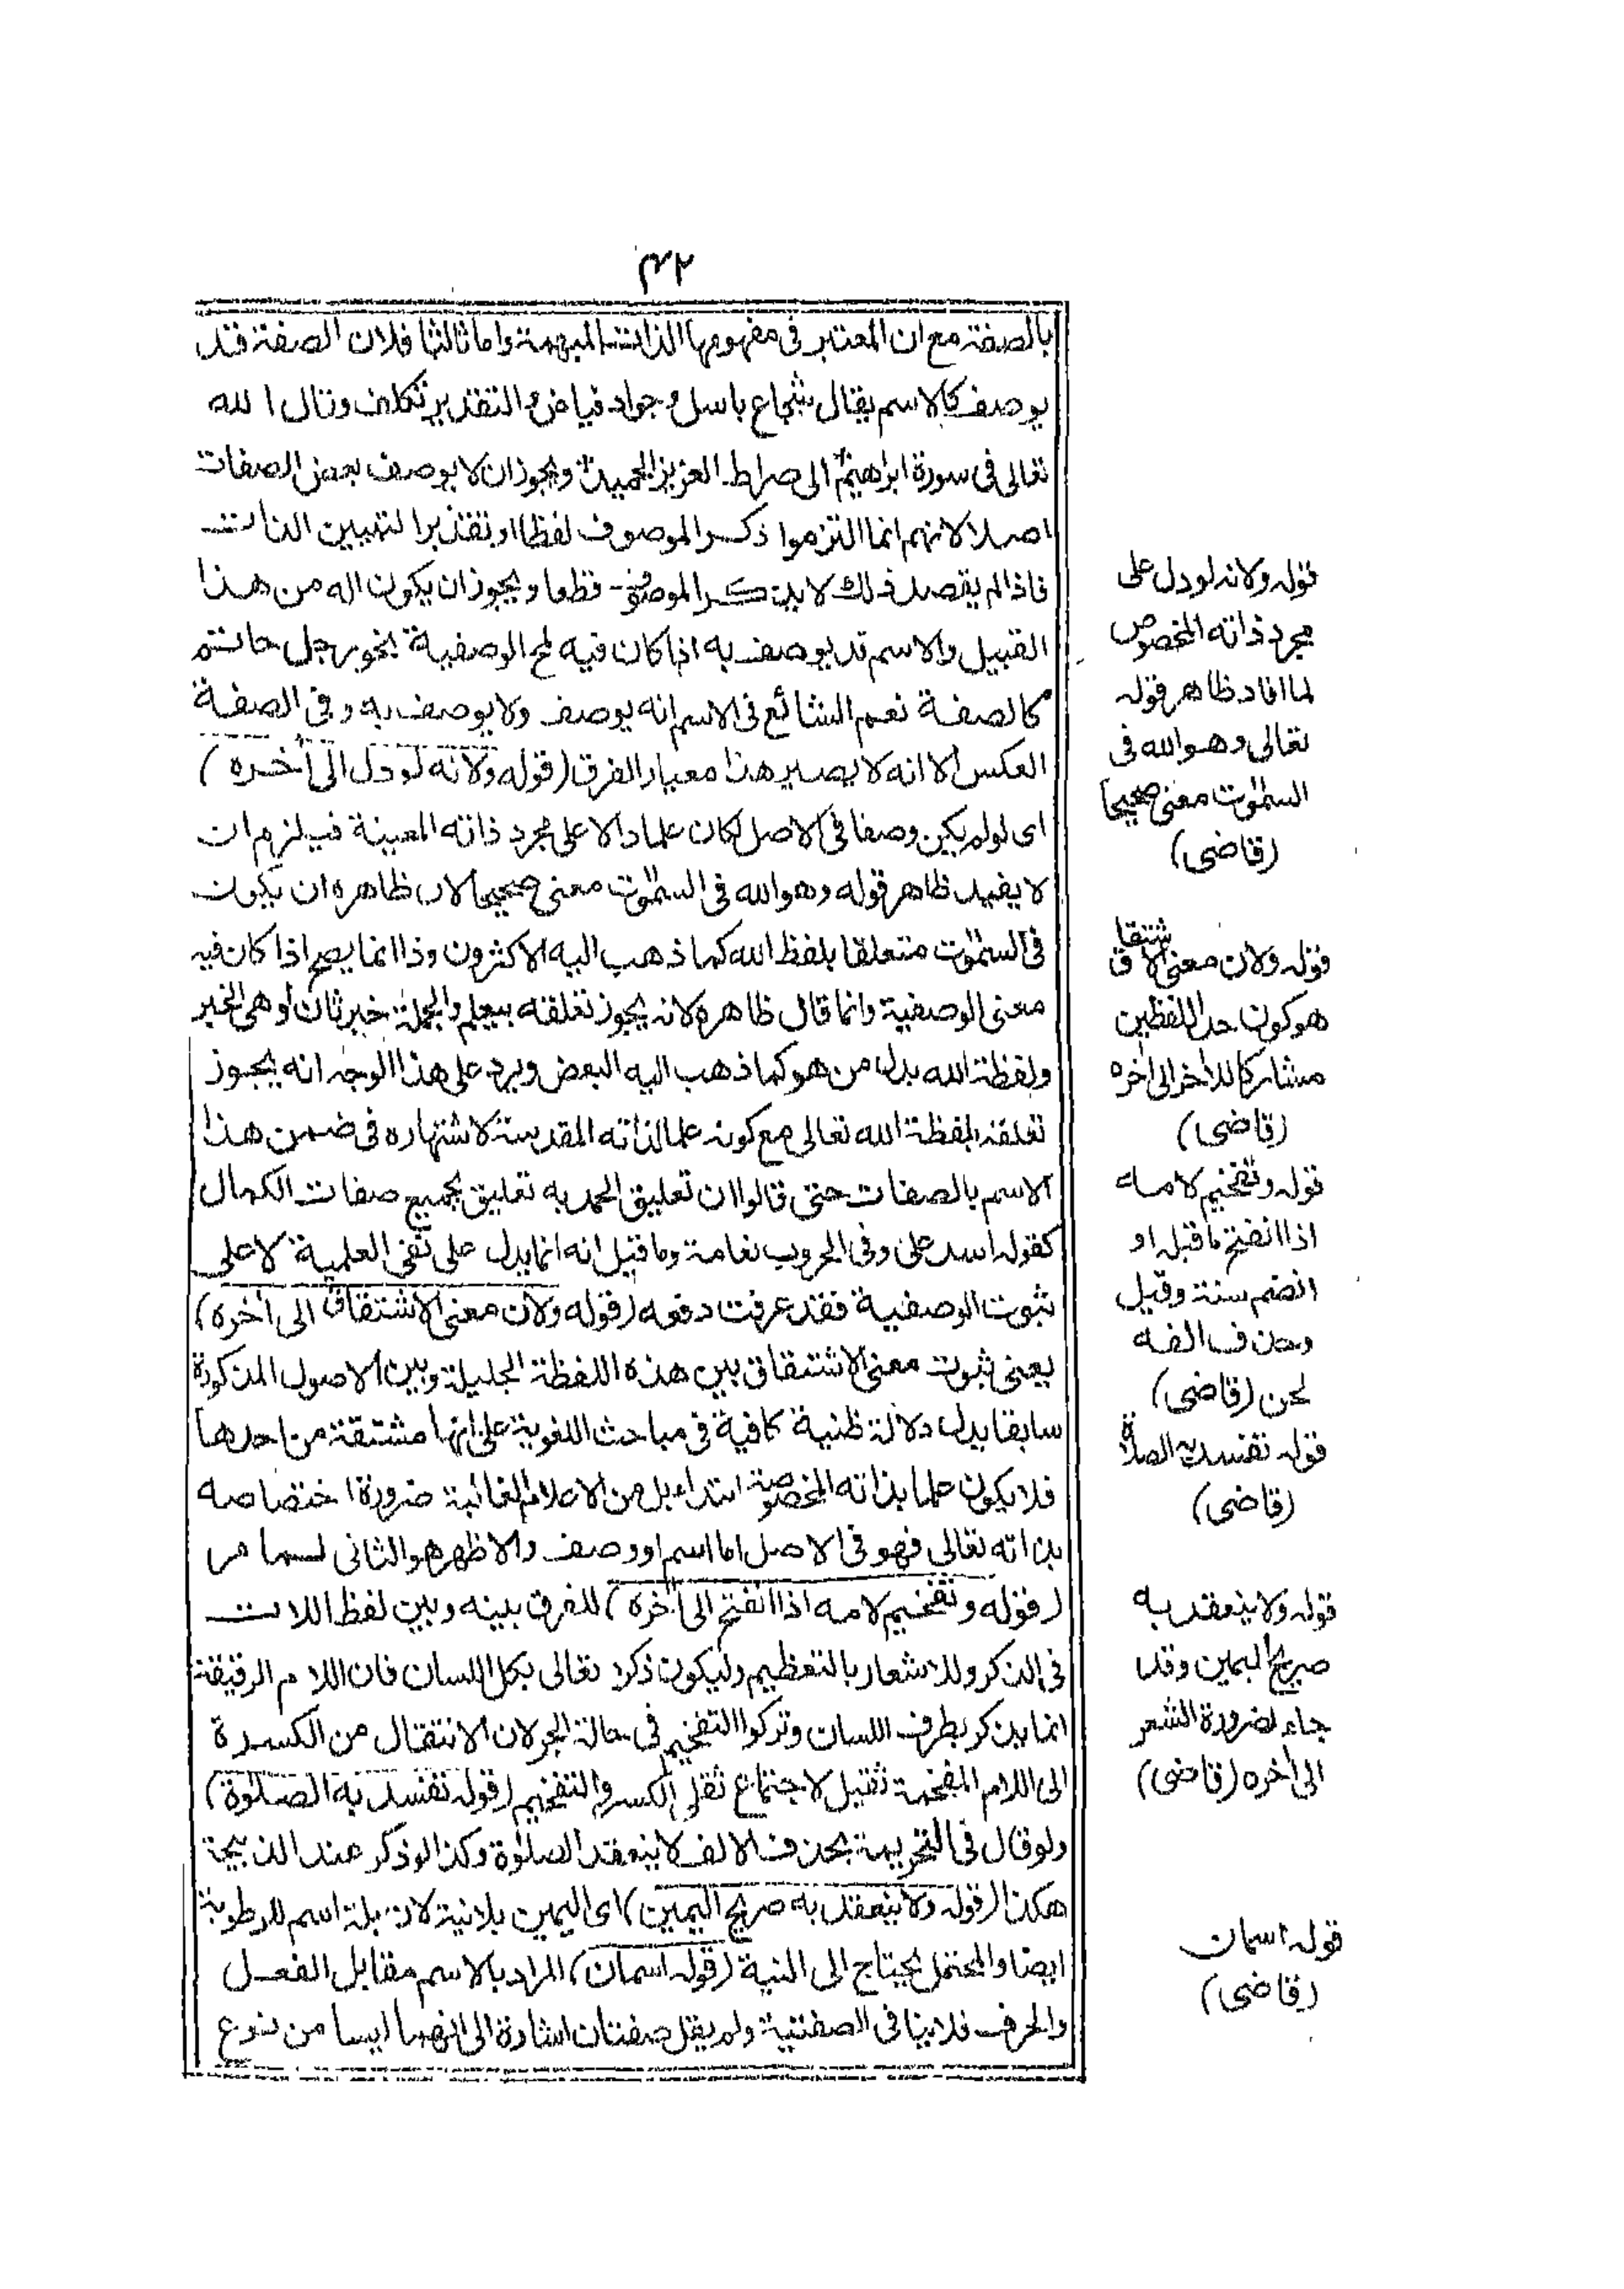 ٤٢
بالصفة مع ان المعتبر فى مفهومها الذات المبهمة واما ثالثا فلان الصفة قد
يوصف كالاسم يقال شجاع باسل وجواد فياض والتقدير تكلف وقال الله
تعالى فى سورة ابراهيم الى صراط العزيز الحميد ويجوز ان لا يوصف بعض الصفات
اصلا لانهم انما التزموا ذكر الموصوف لفظا او تقديرا لتبيين الذات
فاذا لم يقصد ذلك لا يذكر الموصوف قطعا ويجوز ان يكون اله من هذا
القبيل والاسم قد يوصف به اذا كان فيه لمح الوصفية نحو رجل حاتم
كالصفة نعم الشائع فى الاسم انه يوصف ولا يوصف به وفى الصفة
العكس الا انه لا يصير هذا معيار الفرق (قوله ولانه لو دل الى أخره)
اى لو لم يكن وصفا فى الاصل لكان علما دالا على مجرد ذاته المعينة فيلزم ان
لا يفيد ظاهر قوله وهو الله فى السمٰوت معنى صحيحا لان ظاهره ان يكون
فى السمٰوت متعلقا بلفظ الله كما ذهب اليه الاكثرون وذا انما يصح اذا كان فيه
معنى الوصفية وانما قال ظاهره لانه يجوز تعلقه بيعلم والجملة خبر ثان أو هى الخبر
ولفظة الله بدل من هو كما ذهب اليه البعض ويرد على هذا الوجه انه يجوز
تعلقه بلفظة الله تعالى مع كونه علما لذاته المقدسة لاشتهاره فى ضمن هذا
الاسم بالصفات حتى قالوا ان تعليق الحمد به تعليق بجميع صفات الكمال
كقوله اسد على وفى الحروب نعامة وما قيل انه انما يدل على نفى العلمية لا على
ثبوت الوصفية فقد عرفت دفعه (قوله ولان معنى الاشتقاق الى أخره)
يعنى ثبوت معنى الاشتقاق بين هذه اللفظة الجليلة وبين الاصول المذكورة
سابقا يدل دلالة ظنية كافية فى مباحث اللغوية على انها مشتقة من احدها
فلا يكون علما بذاته المخصوصة ابتداء بل من الاعلام الغالبة ضرورة اختصاصه
بذاته تعالى فهو فى الاصل اما اسم او وصف والاظهر هو الثانى لما مر
(قوله وتفخيم لامه اذا انفتح الى أخره) للفرق بينه وبين لفظ اللات
فى الذكر وللاشعار بالتعظيم وليكون ذكره تعالى بكل اللسان فان اللام الرقيقة
انما يذكر بطرف اللسان وتركوا التفخيم فى حالة الجر لان الانتقال من الكسرة
الى اللام المفخمة ثقيل لاجتماع ثقلى الكسر والتفخيم (قوله تفسد به الصلوة)
ولو قال فى التحريمة بحذف الالف لا ينعقد الصلوة وكذا لو ذكر عند الذبيحة
هكذا (قوله ولا ينعقد به صريح اليمين) اى اليمين بلا نية لان بلة اسم للرطوبة
ايضا والمحتمل يحتاج الى النية (قوله اسمان) المراد بالاسم مقابل الفعل
والحرف فلا ينافى الصفتية ولم يقل صفتان اشارة الى انهما ليسا من نوع
قوله ولانه لو دل على
مجرد ذاته المخصوص
لما افاد ظاهر قوله
تعالى وهو الله فى
السمٰوت معنى صحيحا
(قاضى)
قوله ولان معنى الاشتقاق
هو كون احد اللفظين
مشاركا للاخر الى أخره
(قاضى)
قوله وتفخيم لامه
اذا انفتح ما قبله او
انضم سنة وقيل
وحذف الفه
لحن (قاضى)
قوله تفسد به الصلاة
(قاضى)
قوله ولا ينعقد به
صريح اليمين وقد
جاء لضرورة الشعر
الى أخره (قاضى)
قوله اسمان
(قاضى)